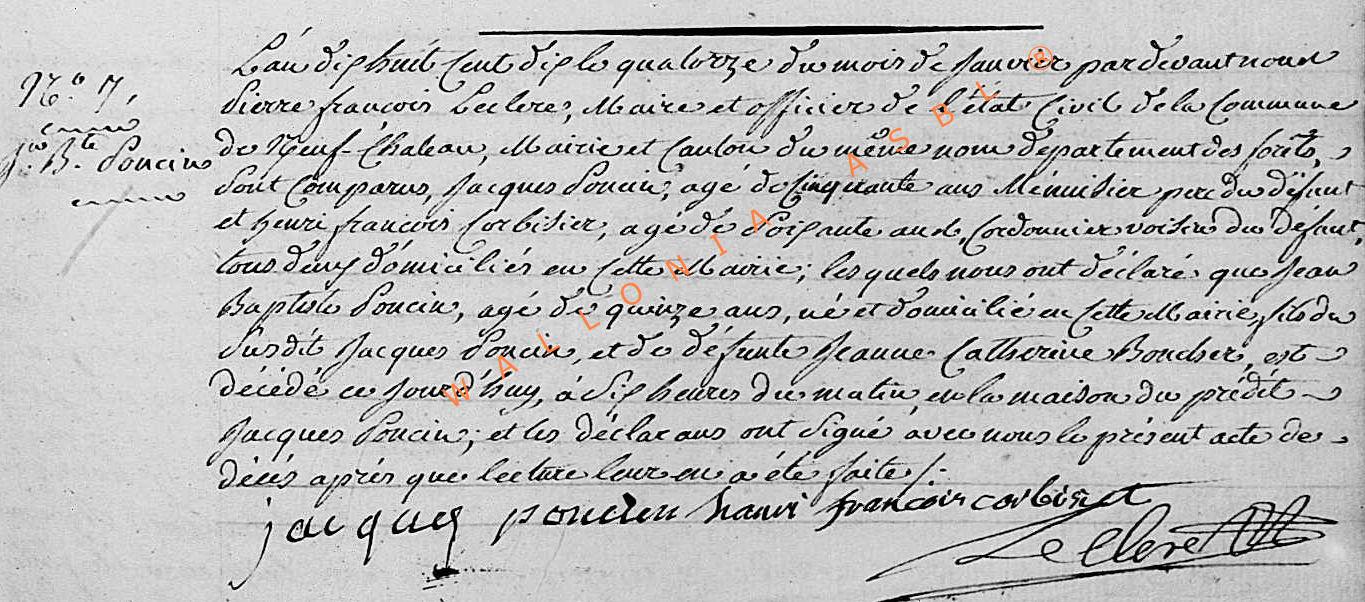 N.º 7.
J.n B.te Poncin
L'an dix huit Cent dix le quatorze du mois de Janvier par devant nous
Pierre françois Leclere, Maire et officier de l'état Civil de la Commune
de Neuf-Chateau, Mairie et Canton du même nom département des forêts,
Sont Comparus, Jacques Poncin, agé de Cinquante ans Ménuisier pere du défunt
et henri françois Corbisier, agé de Soixante ans, Cordonnier voisin du Défunt,
tous deux domiciliés en Cette Mairie; les quels nous ont déclaré que Jean
Baptiste Poncin, agé de quinze ans, né et domicilié en Cette Mairie, fils du
Susdit Jacques Poncin, et de défunte Jeanne Catherine Boncher, est
décédé ce Jourd'huy, à Six heures du matin, en la maison du prédit
Jacques Poncin; et les déclarans ont Signé avec nous le présent acte de
décés aprés que lecture leur en a été faite /.
jacques poncien hanri francoir corbisie
Leclere
WALLONIA ASBL ®